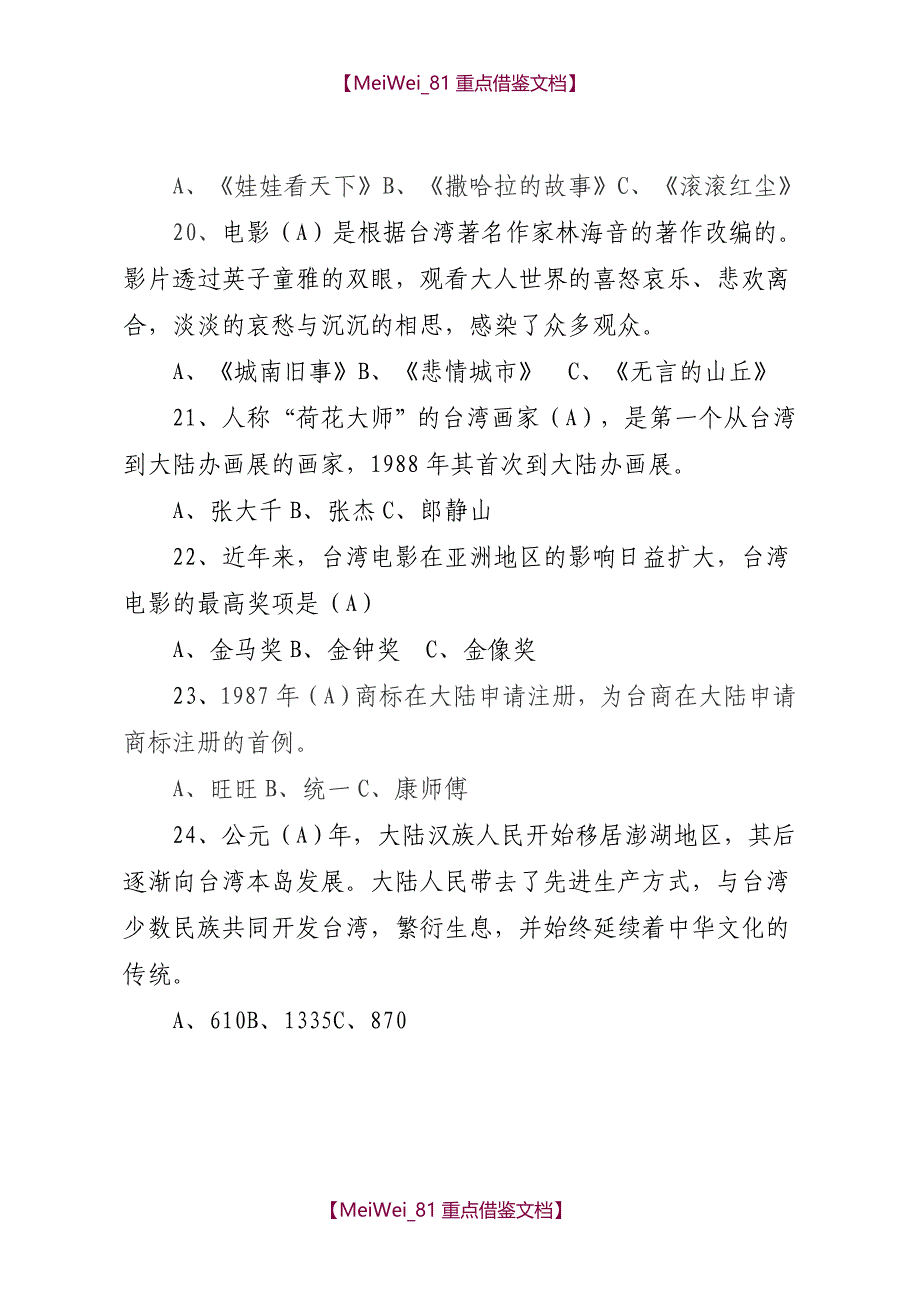 【MeiWei_81重点借鉴文档】
A、《娃娃看天下》B、《撒哈拉的故事》C、《滚滚红尘》
20、电影（A）是根据台湾著名作家林海音的著作改编的。
影片透过英子童雅的双眼，观看大人世界的喜怒哀乐、悲欢离
合，淡淡的哀愁与沉沉的相思，感染了众多观众。
A、《城南旧事》B、《悲情城市》　C、《无言的山丘》
21、人称“荷花大师”的台湾画家（A），是第一个从台湾
到大陆办画展的画家，1988年其首次到大陆办画展。
A、张大千B、张杰C、郎静山
22、近年来，台湾电影在亚洲地区的影响日益扩大，台湾
电影的最高奖项是（A）
A、金马奖B、金钟奖　C、金像奖
23、1987年（A）商标在大陆申请注册，为台商在大陆申请
商标注册的首例。
A、旺旺B、统一C、康师傅
24、公元（A）年，大陆汉族人民开始移居澎湖地区，其后
逐渐向台湾本岛发展。大陆人民带去了先进生产方式，与台湾
少数民族共同开发台湾，繁衍生息，并始终延续着中华文化的
传统。
A、610B、1335C、870
【MeiWei_81重点借鉴文档】